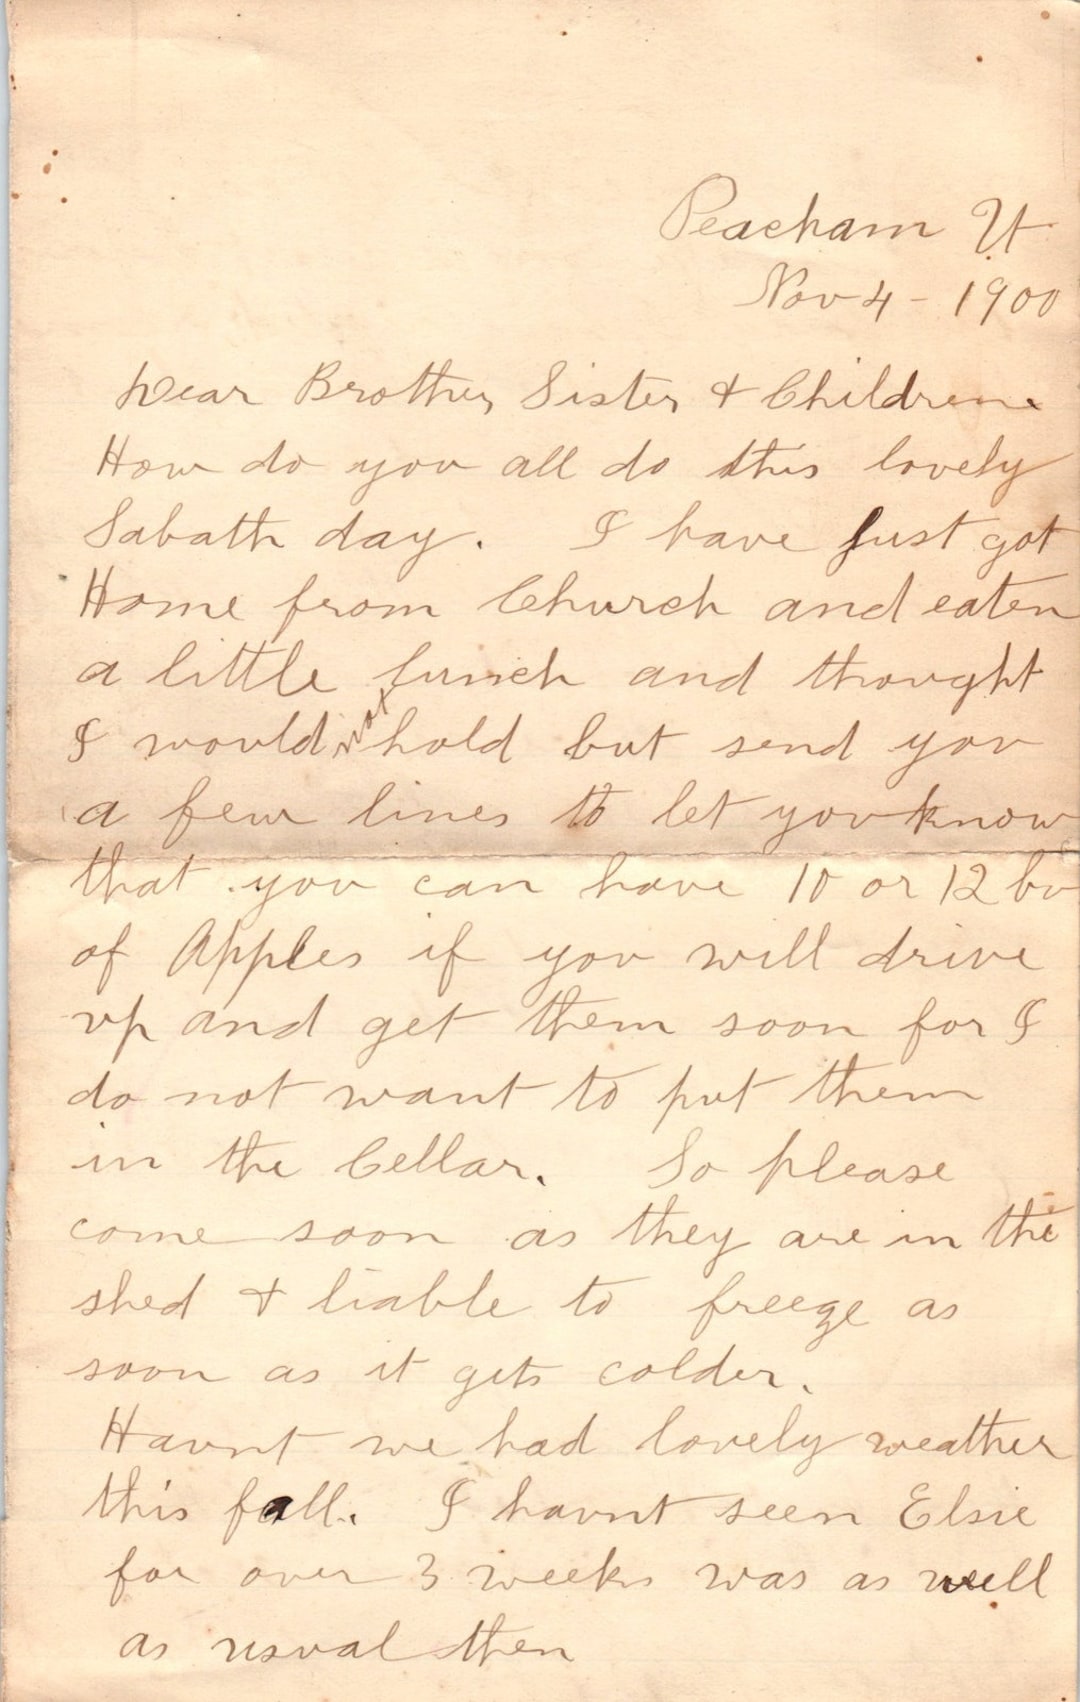 Peacham Vt
Nov 4 - 1900
Dear Brother, Sister, & Children.
How do you all do this lovely
Sabath day. I have just got
Home from Church and eaten
a little lunch and thought
I would not hold but send you
a few lines to let you know
that you can have 10 or 12 bu
of Apples if you will drive
up and get them soon for I
do not want to put them
in the Cellar. So please
come soon as they are in the
shed & liable to freeze as
soon as it gets colder.
Havnt we had lovely weather
this fall. I havnt seen Elsie
for over 3 weeks was as well
as usual then